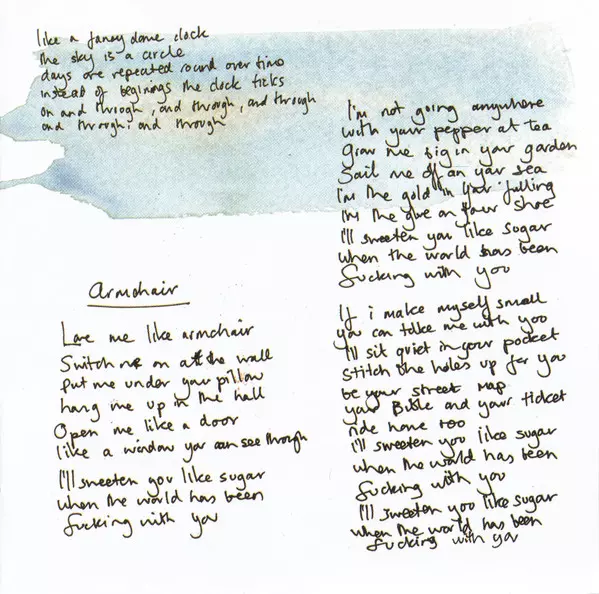 like a fancy dome clock
the sky is a circle
days are repeated round over time
instead of beginings the clock ticks
on and through, and through, and through
and through, and through
Armchair
Love me like armchair
Switch me on at the wall
put me under your pillow
hang me up in the hall
Open me like a door
like a window you can see through
I'll sweeten you like sugar
when the world has been
fucking with you
I'm not going anywhere
with your pepper at tea
Grow me big in your garden
Sail me off on your sea
I'm the gold in your filling
I'm the glue on your shoe
I'll sweeten you like sugar
when the world has been
fucking with you
If i make myself small
you can take me with you
I'll sit quiet in your pocket
stitch the holes up for you
be your street map
your Bible and your ticket
ride home too
I'll sweeten you like sugar
when the world has been
fucking with you
I'll sweeten you like sugar
when the world has been
fucking with you